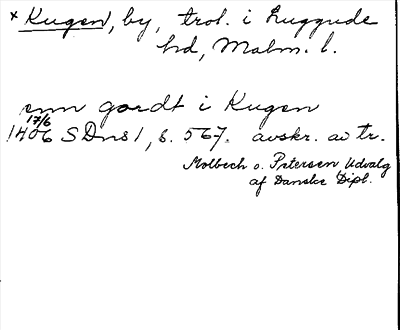 × Kugen, by, trol. i Luggude
hd, Malm. l.
enn gardt i Kugen
17/6
1406 SDns 1, s. 567. avskr. av tr.
Molbech o. Petersen Udvalg
af Danske Dipl.